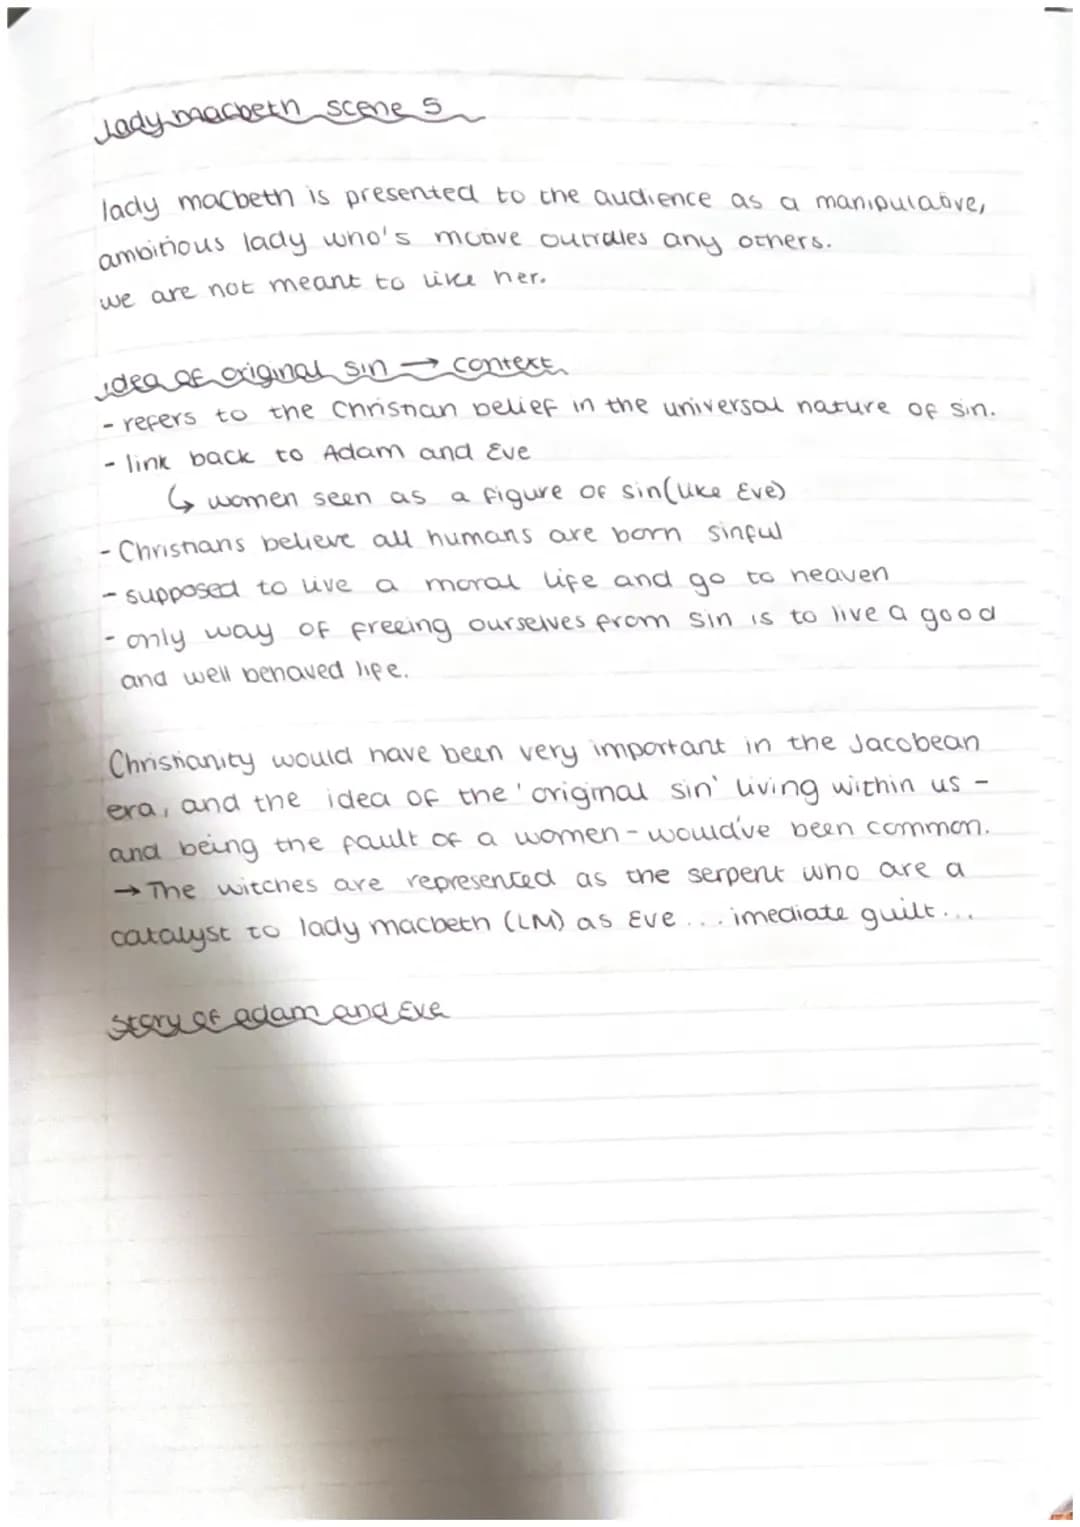 lady macbeth scene 5
lady macbeth is presented to the audience as a manipulative,
ambitious lady who's motive outrules any others.
we are not meant to like her.
idea of original sin → context
- refers to the Christian belief in the universal nature of sin.
- link back to Adam and Eve
↳ women seen as a figure of sin (like Eve)
- Christians believe all humans are born sinful
- supposed to live a moral life and go to heaven
- only way of freeing ourselves from sin is to live a good
and well behaved life.
Christianity would have been very important in the Jacobean
era, and the idea of the 'original sin' living within us -
and being the fault of a women - would've been common.
→ The witches are represented as the serpent who are a
catalyst to lady macbeth (LM) as Eve... imediate guilt...
story of adam and Eve